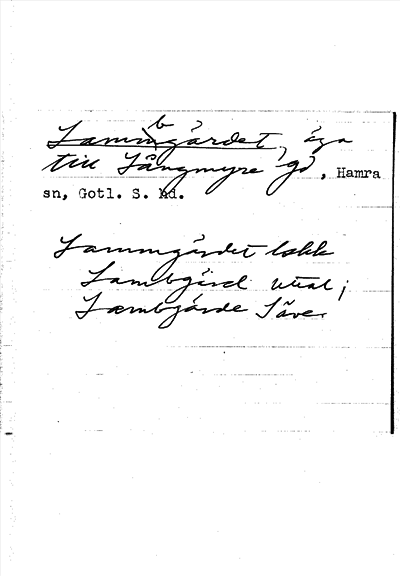 Lambgärdet, äga
till Långmyre gd, Hamra
sn, Gotl. S. hd.
Lammgärdet lokk
Lambgärd uttal;
Lambgärde Säve